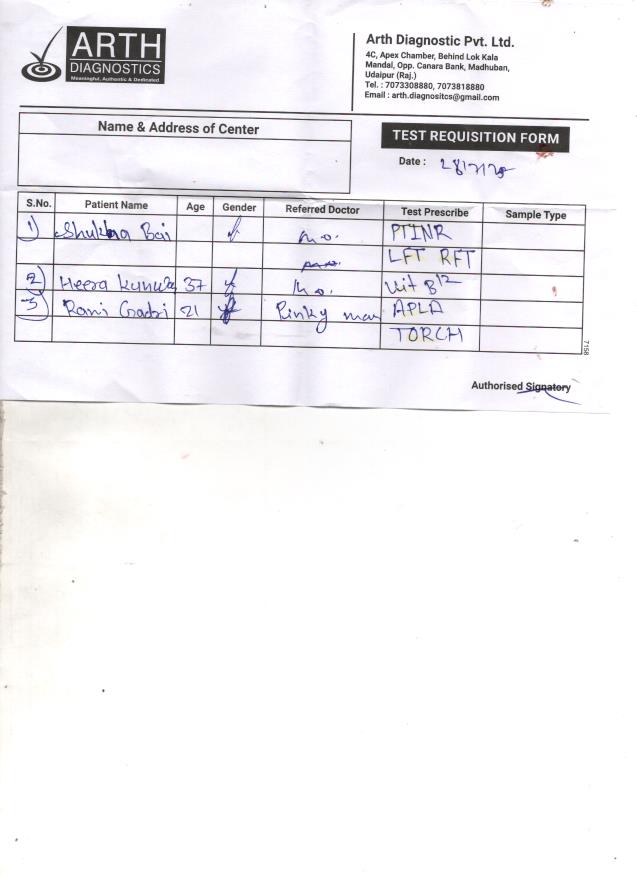 ARTH
DIAGNOSTICS
Meaningful, Authentic & Dedicated
Arth Diagnostic Pvt. Ltd.
4C, Apex Chamber, Behind Lok Kala
Mandal, Opp. Canara Bank, Madhuban,
Udaipur (Raj.)
Tel. : 7073308880, 7073818880
Email : arth.diagnositcs@gmail.com
Name & Address of Center
TEST REQUISITION FORM
Date :
S.No. Patient Name Age Gender Referred Doctor Test Prescribe Sample Type
1) Bai M.O. PTINR
LFT RFT
2) Heera 37 M.O. Vit B12
3) Rani 21 Pinky APLA
TORCH
7158
Authorised Signatory